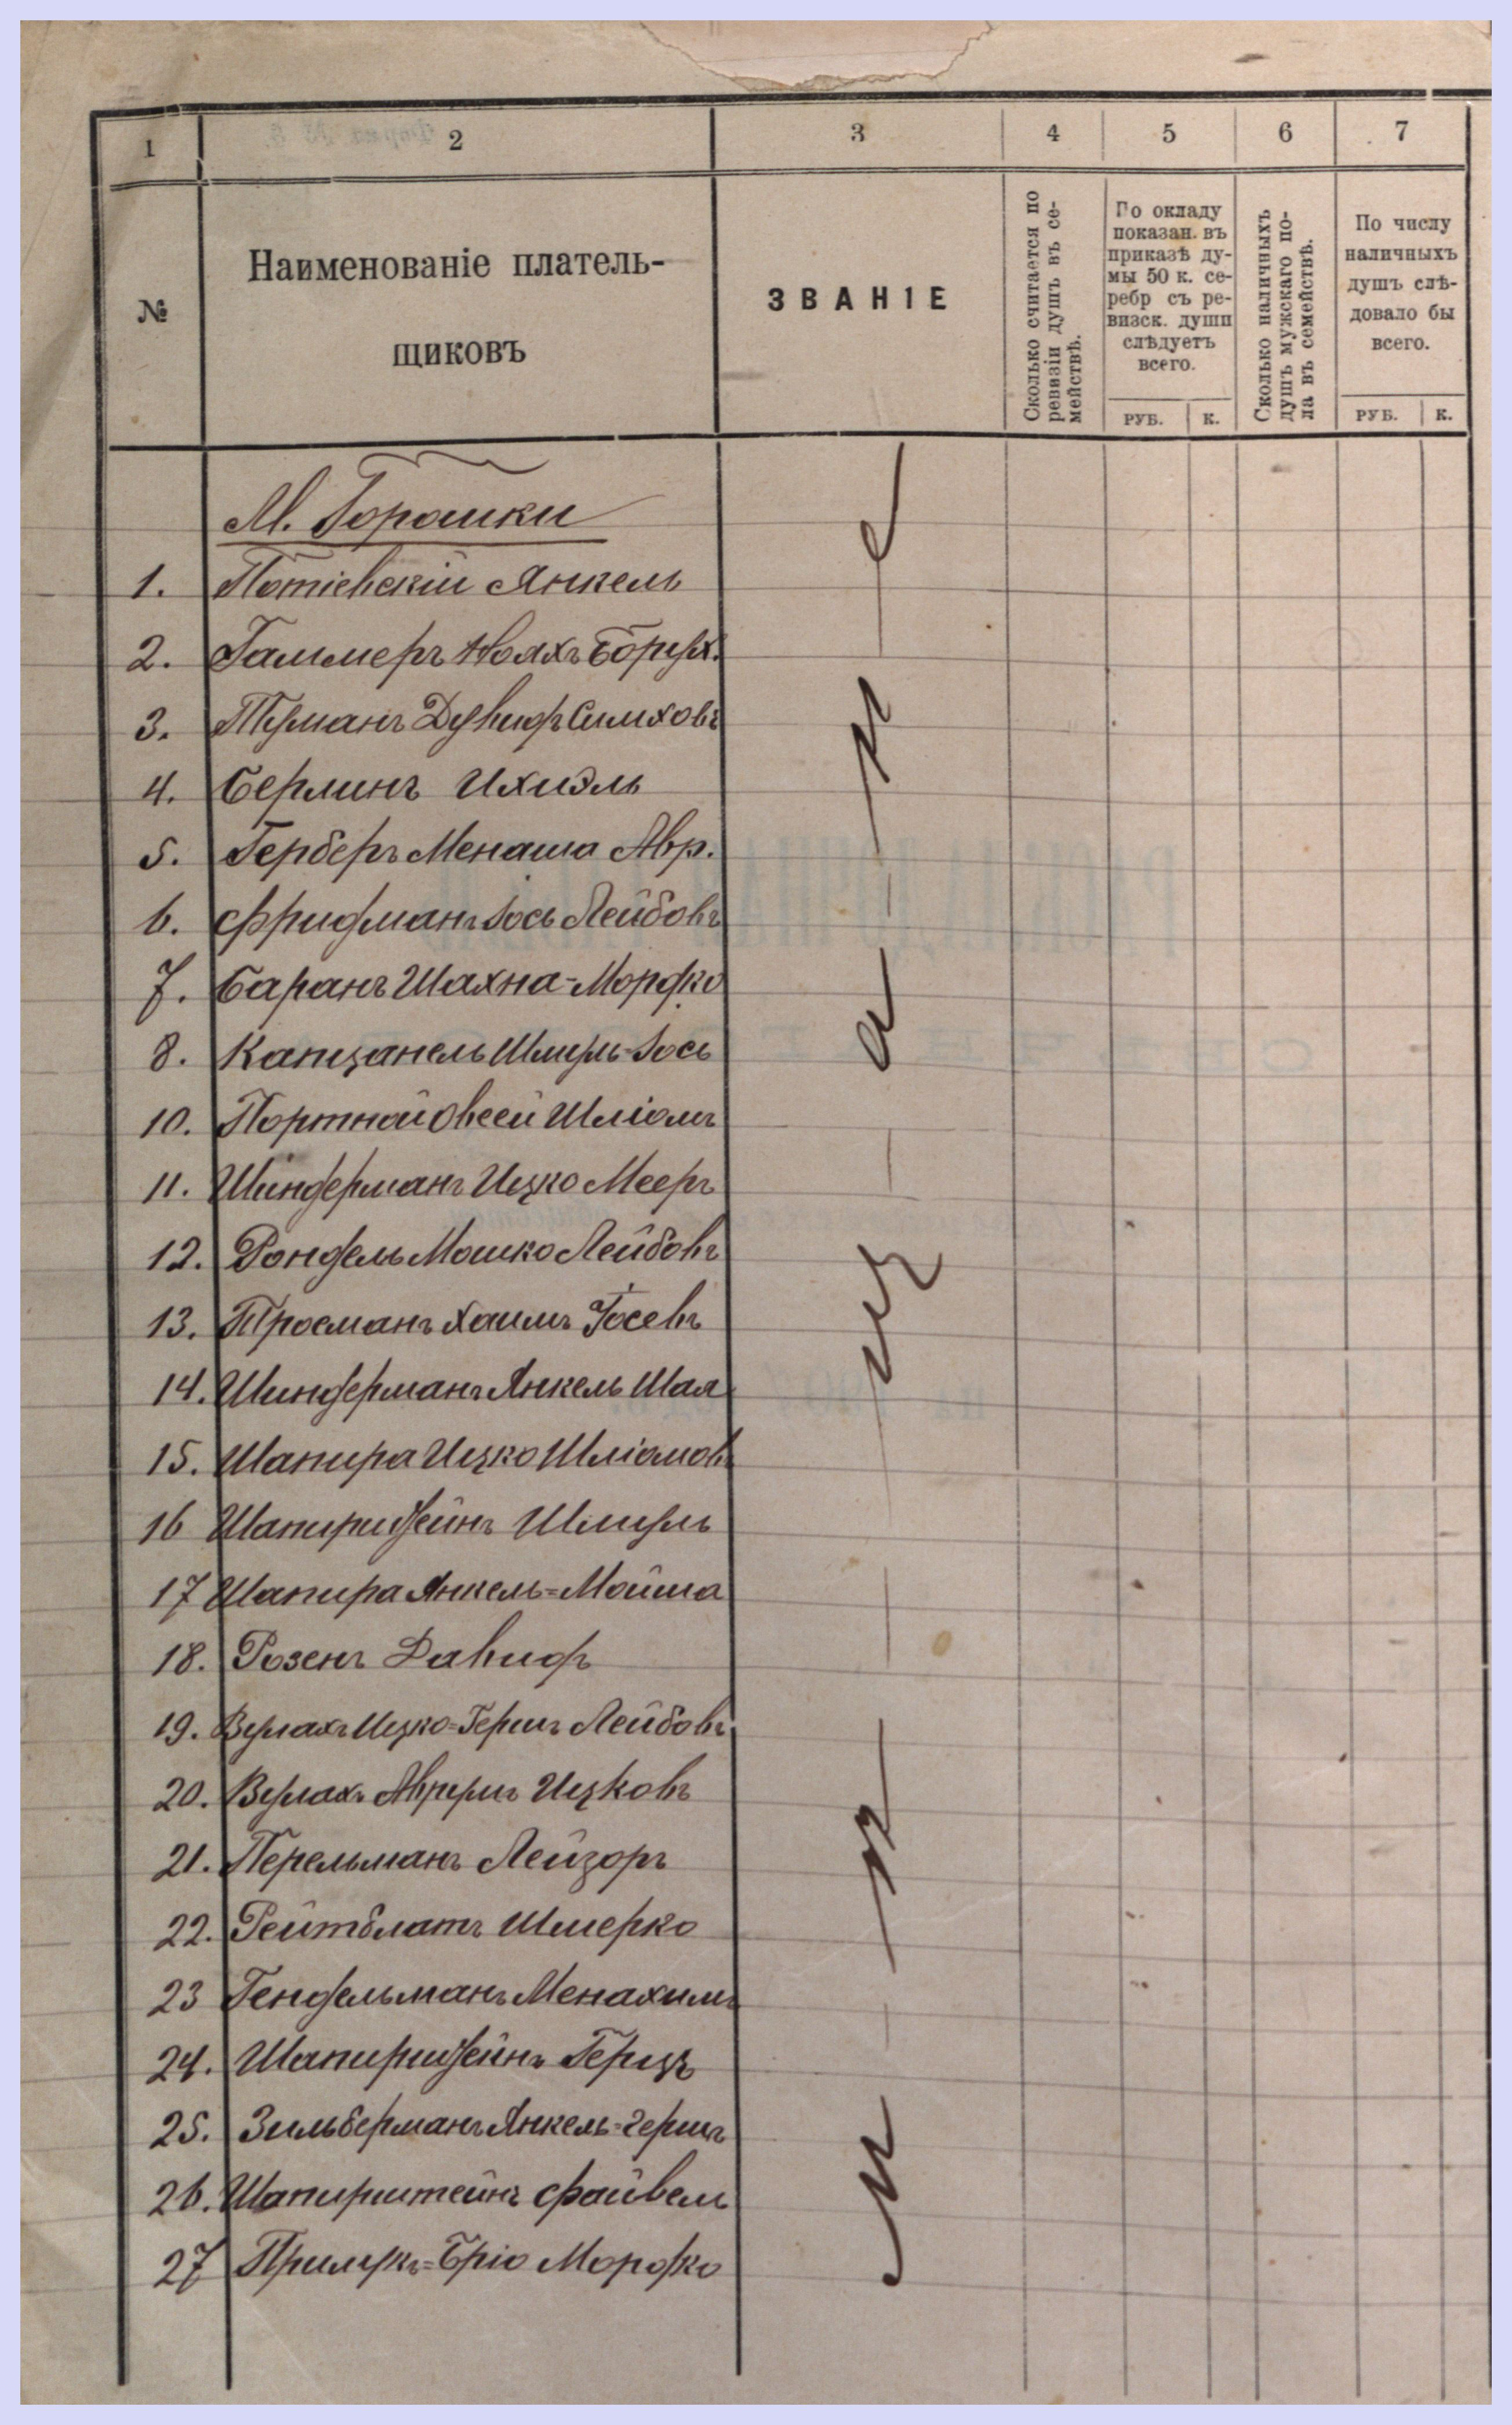 1 2 3 4 5 6 7
№
Наименованіе платель-
щиковъ
ЗВАНІЕ
Сколько считается по
ревизіи душъ въ се-
мействѣ.
По окладу
показан. въ
приказѣ ду-
мы 50 к. се-
ребр съ ре-
визск. души
слѣдуетъ
всего.
РУБ. К.
Сколько наличныхъ
душъ мужскаго по-
ла въ семействѣ.
По числу
наличныхъ
душъ слѣ-
довало бы
всего.
РУБ. К.
М. Горошки
1. Потіевскій Янкель
2. Гаммеръ Ноахъ Борух.
3. Турманъ Дувидъ Симховъ
4. Берлинъ Ихиэль
5. Герберъ Менаша Авр.
6. Фридманъ Іось Лейбовъ
7. Баранъ Шахна-Мордко
8. Капцанель Шмуль=Іось
10. Портной Овсей Шліомъ
11. Шиндерманъ Ицко Мееръ
12. Рондель Мошко Лейбовъ
13. Тросманъ Хаимъ Іосевъ
14. Шиндерманъ Янкель Шая
15. Шапира Ицко Шліомовъ
16 Шапирштейнъ Шмуль
17 Шапира Янкель=Мойша
18. Розенъ Давидъ
19. Вурлахъ Ицко=Гершъ Лейбовъ
20. Вурлахъ Аврумъ Ицковъ
21. Перельманъ Лейзоръ
22. Рейтблатъ Шмерко
23 Гендельманъ Менахимъ
24. Шапирштейнъ Герцъ
25. Зильберманъ Янкель=Гершъ
26. Шапирштейнъ Файвель
27 Прилукъ=Бріо Мордко